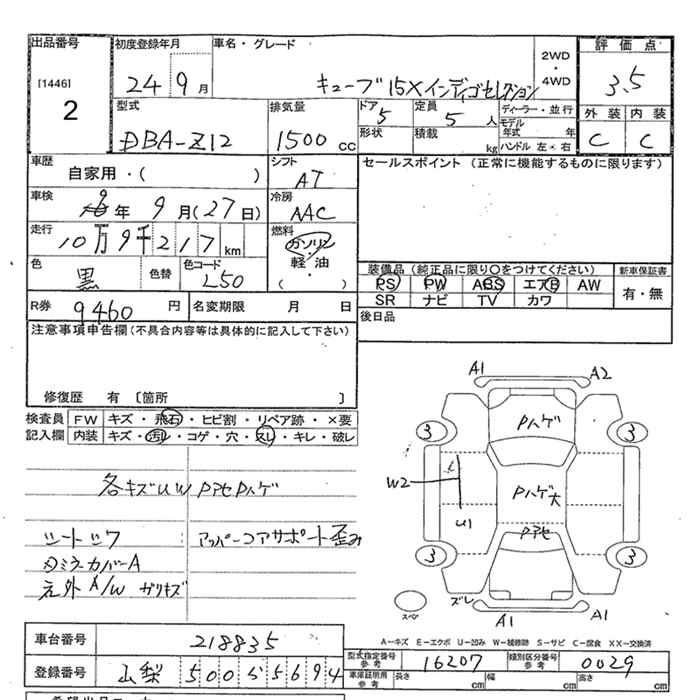 出品番号 初度登録年月 車名・グレード 2WD・4WD 評価点
[1446] 2
24 9月 キューブ 15X インディゴセレクション 3.5
型式 排気量 ドア 5 定員 5人 ディーラー・並行 外装 内装
DBA-Z12 1500cc 形状 積載 kg モデル年式 年 C C
ハンドル 左・右
車歴 自家用・( ) シフト AT セールスポイント(正常に機能するものに限ります)
車検 年 9月(27日) 冷房 AAC
走行 10万9千217km 燃料 ガソリン 軽・油 ・( )
色 黒 色替 色コード L50
装備品(純正品に限り○をつけてください) 新車保証書
PS PW ABS エアB AW 有・無
SR ナビ TV カワ
R券 9460円 名変期限 月 日 後日品
注意事項申告欄(不具合内容等は具体的に記入して下さい)
修復歴 有 〔箇所 〕
検査員 FW キズ・飛石・ヒビ割・リペア跡・×要
記入欄 内装 キズ・汚レ・コゲ・穴・スレ・キレ・破レ
各キズUW PアセPハゲ
シートシワ アッパーコアサポート歪み
ロミラーカバーA
元外A/W ガリキズ
A1 A2
Pハゲ
3 3
W2 Pハゲ大
U1
Pアセ
3 3
スペア ズレ
A1 A1
A-キズ E-エクボ U-凹み W-補修跡 S-サビ C-腐食 XX-交換済
車台番号 218835
型式指定番号 参考 16207 類別区分番号 参考 0029
登録番号 山梨 500 5694
車庫証明用 参考 長さ cm 幅 cm 高さ cm